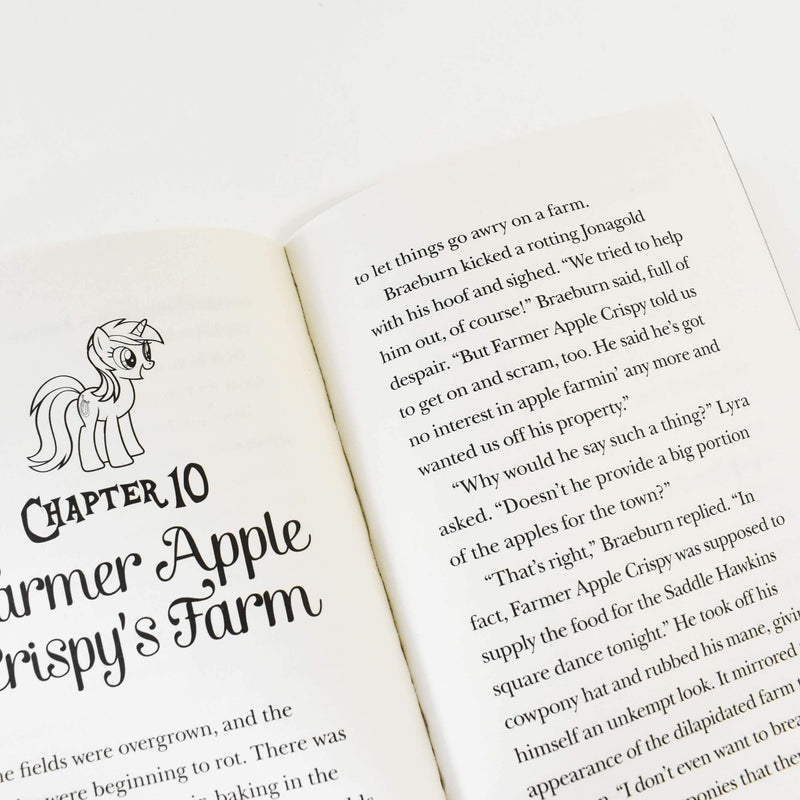 CHAPTER 10
Farmer Apple
Crispy's Farm
fields were overgrown, and the
were beginning to rot. There was
baking in the
to let things go awry on a farm.
Braeburn kicked a rotting Jonagold
with his hoof and sighed. “We tried to help
him out, of course!” Braeburn said, full of
despair. “But Farmer Apple Crispy told us
to get on and scram, too. He said he’s got
no interest in apple farmin’ any more and
wanted us off his property.”
“Why would he say such a thing?” Lyra
asked. “Doesn’t he provide a big portion
of the apples for the town?”
“That’s right,” Braeburn replied. “In
fact, Farmer Apple Crispy was supposed to
supply the food for the Saddle Hawkins
square dance tonight.” He took off his
cowpony hat and rubbed his mane,
himself an unkempt look. It mirrored
appearance of the dilapidated farm
“I don’t even want to
ponies that